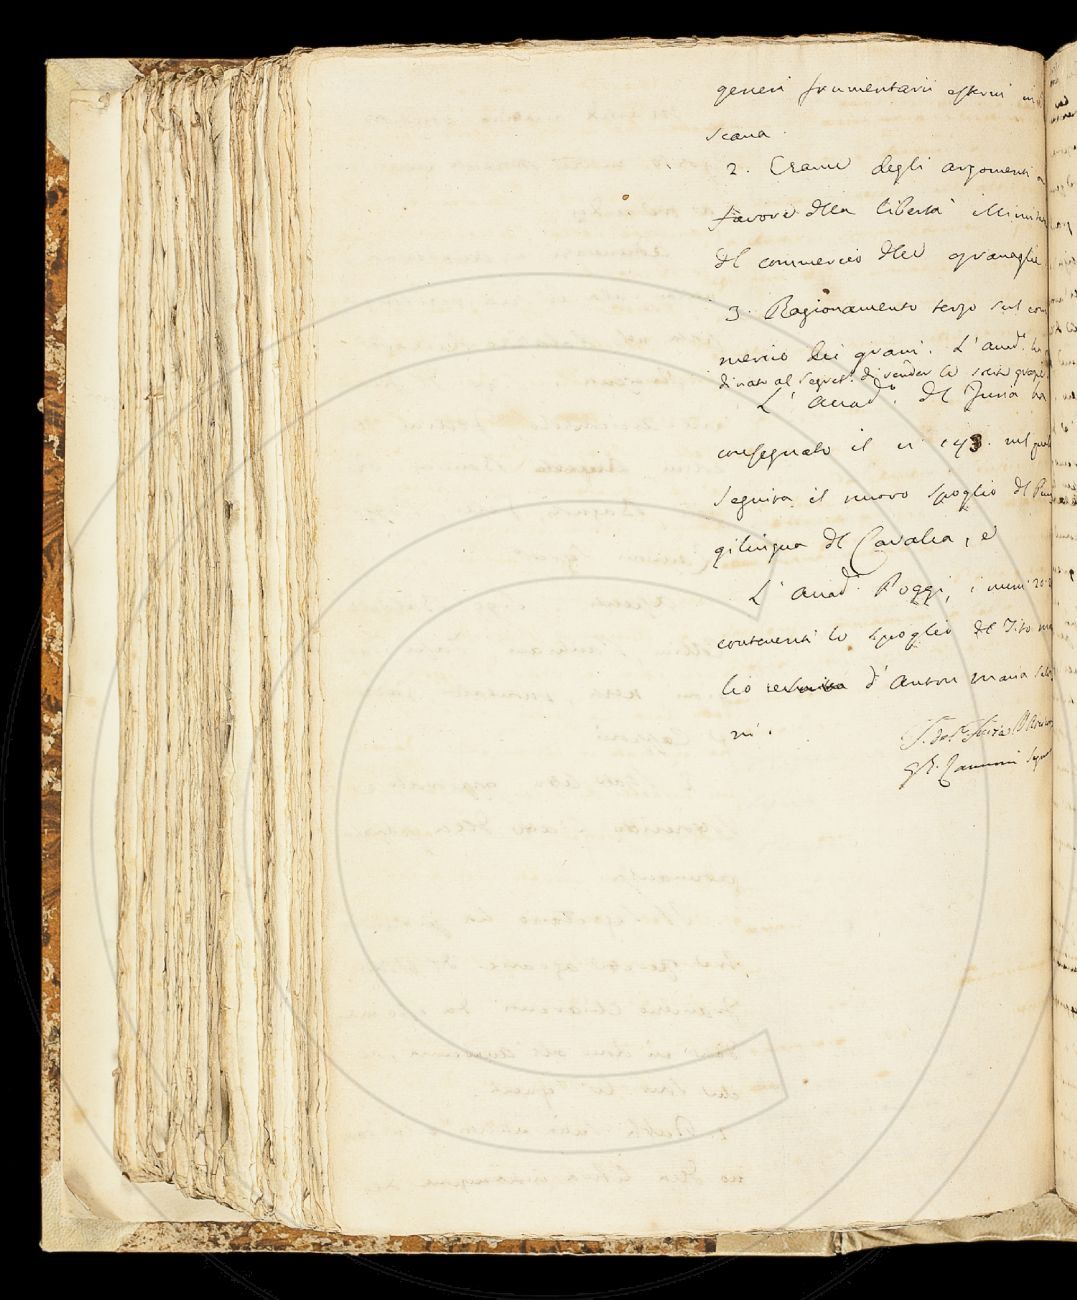 generi frumentarii esterni in
scana.
2. Esame degli argomenti a
favore della libertà illimita
del commercio delle granaglie
3. Ragionamento terzo sul com
mercio dei grani. L'Accad.ª ha
dinato al Segret.º di render le
L'Accad.º del Furia ha
consegnato il n.º 143. nel quale
seguita il nuovo spoglio del Pun
gilingua del Cavalca, e
L'Accad.º Poggi, i numi
contenenti lo spoglio del Tito ma
lio d'Anton Maria Salvi
ni.
F. del Furia
G. B. Zannoni Segr